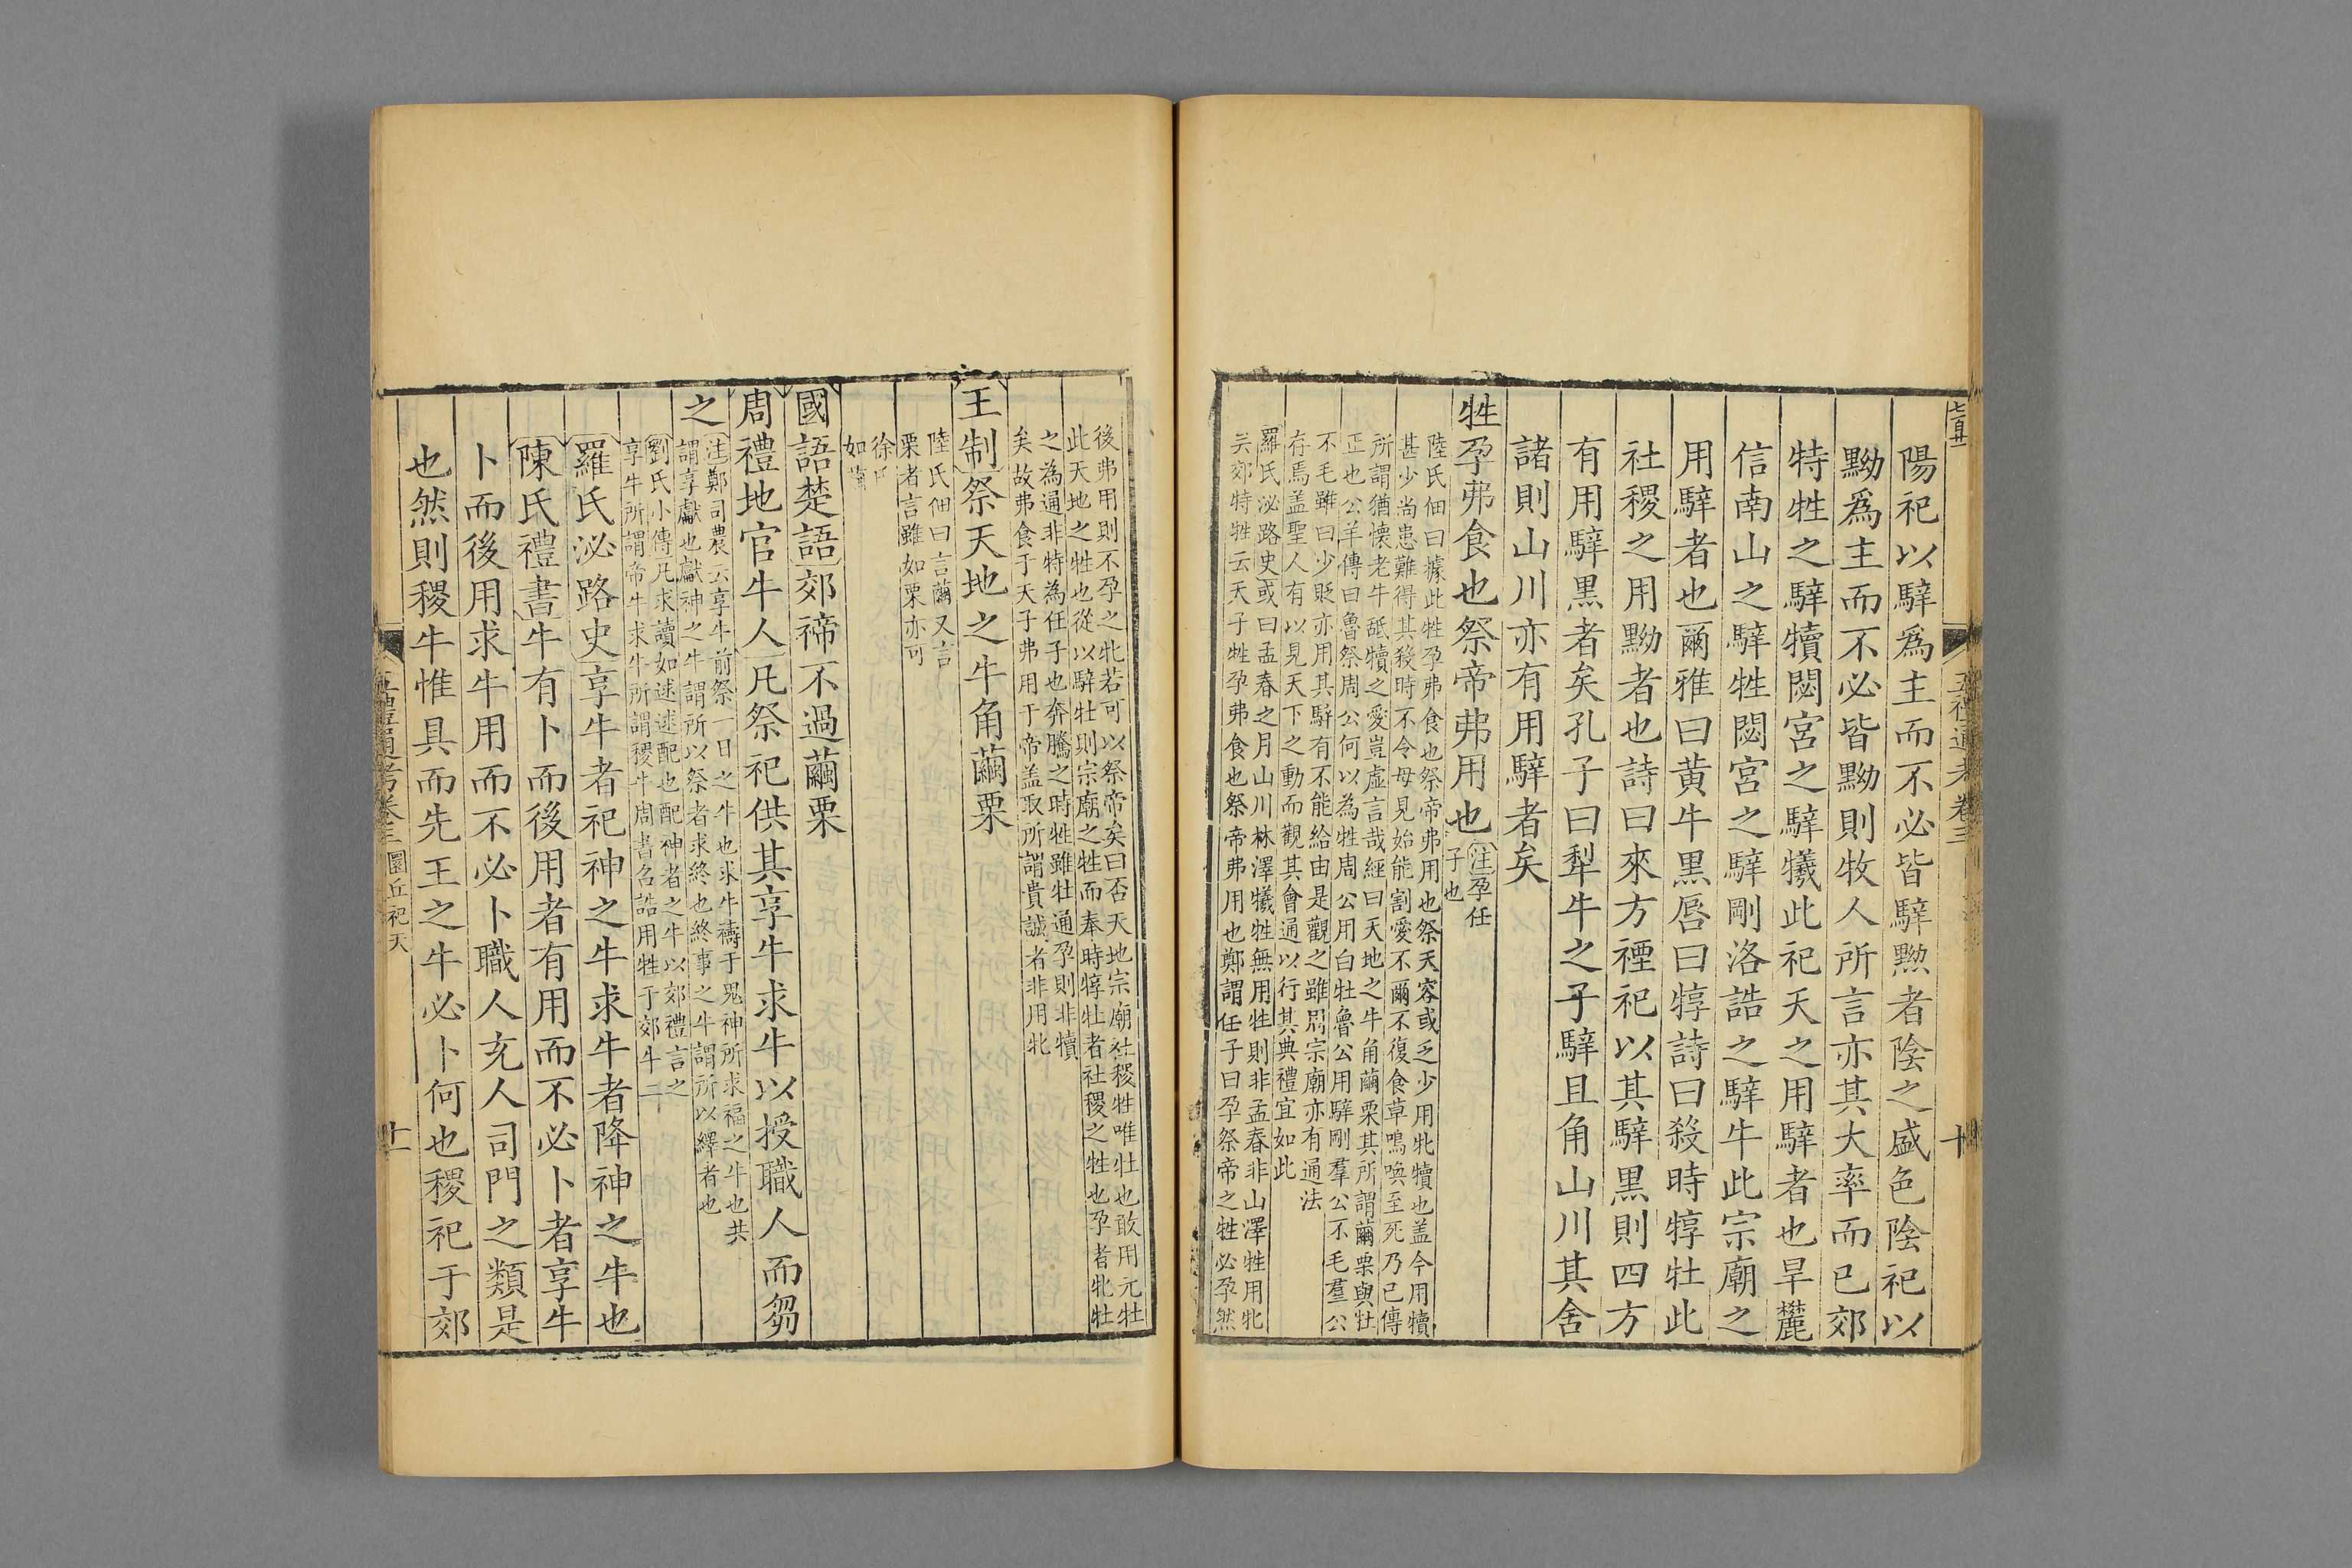 七百廿
五禮通考卷三
十
陽祀以騂爲主而不必皆騂黝者陰之盛色陰祀以
黝爲主而不必皆黝則牧人所言亦其大率而已郊
特牲之騂犢閟宮之騂犧此祀天之用騂者也旱麓
信南山之騂牲閟宮之騂剛洛誥之騂牛此宗廟之
用騂者也爾雅曰黃牛黑唇曰犉詩曰殺時犉牡此
社稷之用黝者也詩曰來方禋祀以其騂黑則四方
有用騂黑者矣孔子曰犁牛之子騂且角山川其舍
諸則山川亦有用騂者矣
牲孕弗食也祭帝弗用也
注孕任
子也
陸氏佃曰據此牲孕弗食也祭帝弗用也祭天容或乏少用牝犢也盖今用犢
甚少尚患難得其殺時不令母見始能割愛不爾不復食草鳴喚至死乃已傳
所謂猶懷老牛舐犢之愛豈虛言哉經曰天地之牛角繭栗其所謂繭栗與牡
正也公羊傳曰魯祭周公何以為牲周公用白牡魯公用騂剛羣公不毛羣公
不毛雖曰少貶亦用其騂有不能給由是觀之雖則宗廟亦有通法
存焉盖聖人有以見天下之動而觀其會通以行其典禮宜如此
羅氏泌路史或曰孟春之月山川林澤犧牲無用牲則非孟春非山澤牲用牝
矣郊特牲云天子牲孕弗食也祭帝弗用也鄭謂任子曰孕祭帝之牲必孕然
後弗用則不孕之牝若可以祭帝矣曰否天地宗廟社稷牲唯牡也敢用元牡
此天地之牲也從以騂牡則宗廟之牲而奉時犉牡者社稷之牲也孕者牝牡
之為通非特為任子也奔騰之時牲雖牡通孕則非犢
矣故弗食于天子弗用于帝盖取所謂貴誠者非用牝
王制祭天地之牛角繭栗
陸氏佃曰言繭又言
栗者言雖如栗亦可
徐氏
如繭
國語楚語郊禘不過繭栗
周禮地官牛人凡祭祀供其享牛求牛以授職人而芻
之
注鄭司農云享牛前祭一日之牛也求牛禱于鬼神所求福之牛也共
謂享獻也獻神之牛謂所以祭者求終也終事之牛謂所以繹者也
劉氏小傳凡求讀如逑逑配也配神者之牛以郊禮言之
享牛所謂帝牛求牛所謂稷牛周書名誥用牲于郊牛二
羅氏泌路史享牛者祀神之牛求牛者降神之牛也
陳氏禮書牛有卜而後用者有用而不必卜者享牛
卜而後用求牛用而不必卜職人充人司門之類是
也然則稷牛惟具而先王之牛必卜何也稷祀于郊
五禮通考卷三 圜丘祀天
十一